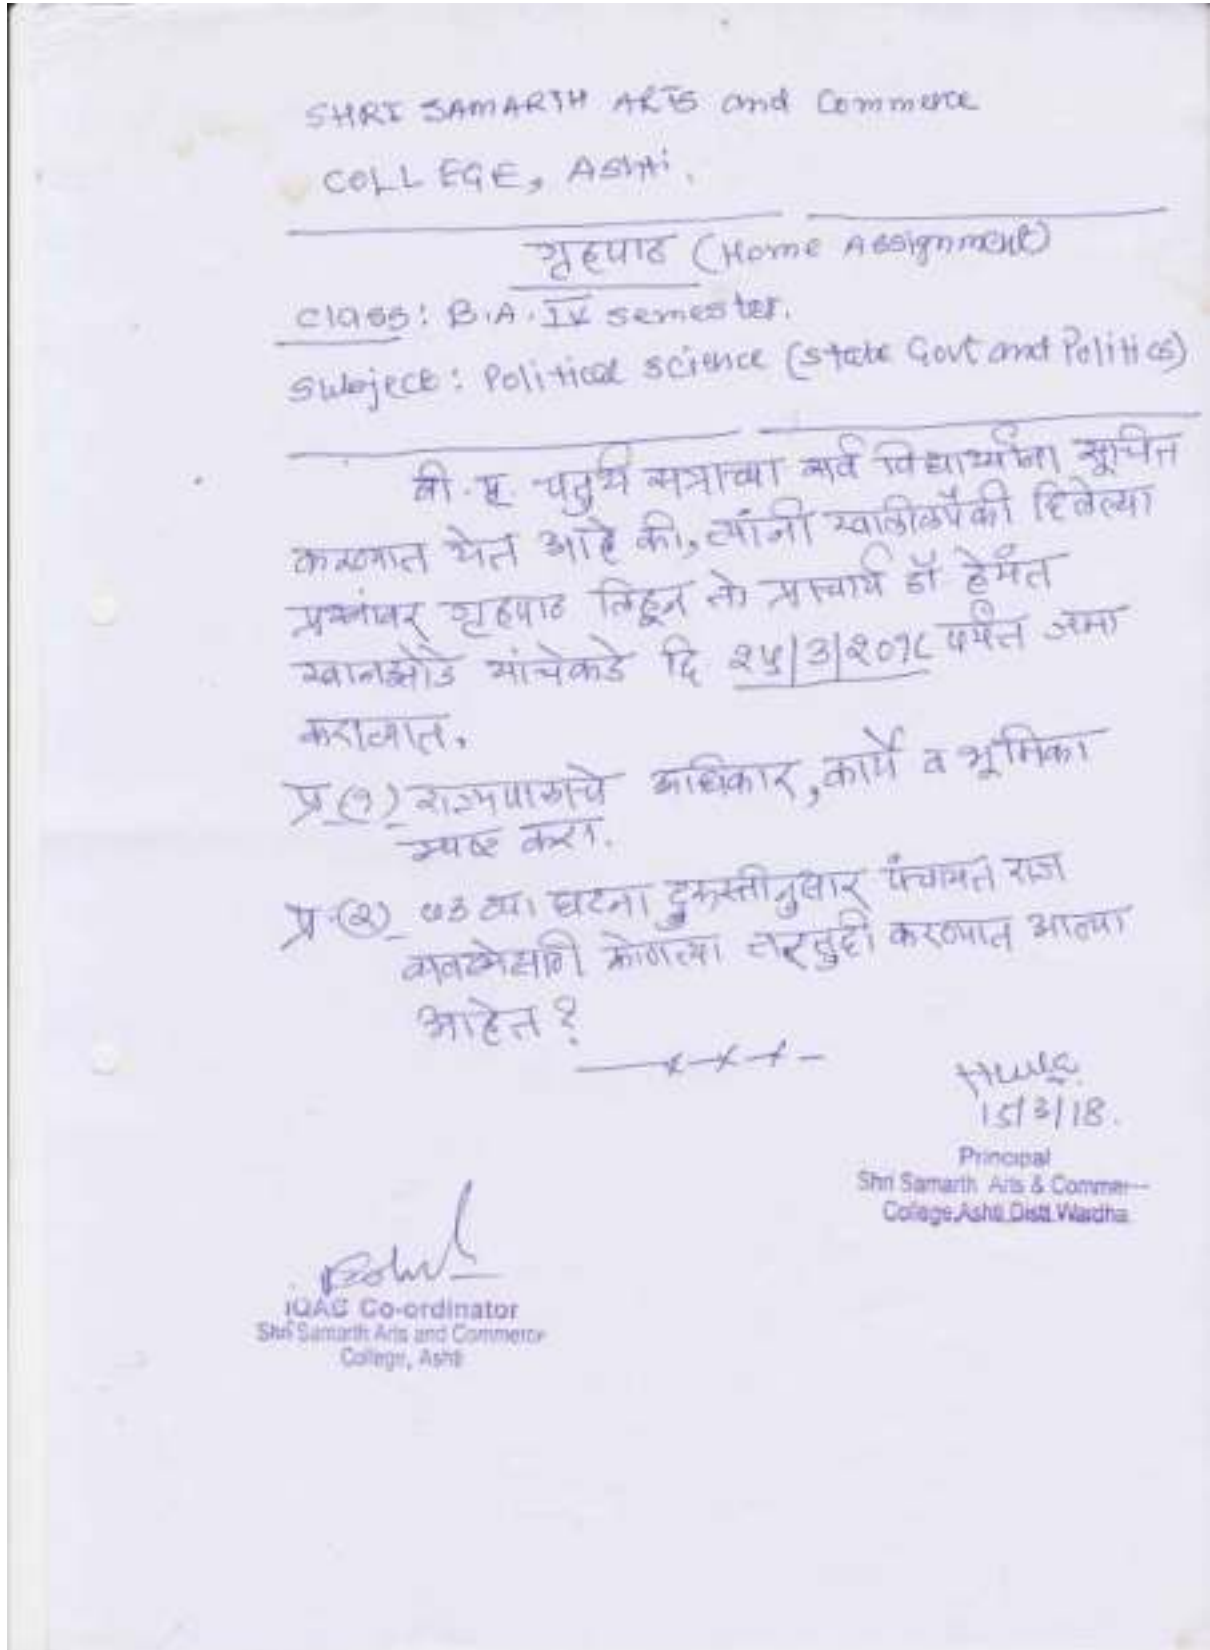 SHRI SAMARTH ARTS and Commerce
COLLEGE, Ashti.
गृहपाठ (Home Assignment)
Class: B.A. IV semester.
Subject: Political science (State Govt and Politics)
बी. ए. चतुर्थ सत्राच्या सर्व विद्यार्थ्यांना सूचित
करण्यात येत आहे की, त्यांनी खालीलपैकी दिलेल्या
प्रश्नांवर गृहपाठ लिहून तो प्राचार्य डॉ हेमंत
खानझोडे यांचेकडे दि २५/3/२०१८ पर्यंत जमा
करावात.
प्र (१) राज्यपालाचे अधिकार, कार्ये व भूमिका
स्पष्ट करा.
प्र (२) ७३ व्या घटना दुरुस्तीनुसार पंचायत राज
व्यवस्थेसाठी कोणत्या तरतुदी करण्यात आल्या
आहेत ?
15/3/18.
Principal
Shri Samarth Arts & Commer
College,Ashti Distt.Wardha
IQAC Co-ordinator
Shri Samarth Arts and Commerce
College, Ashti